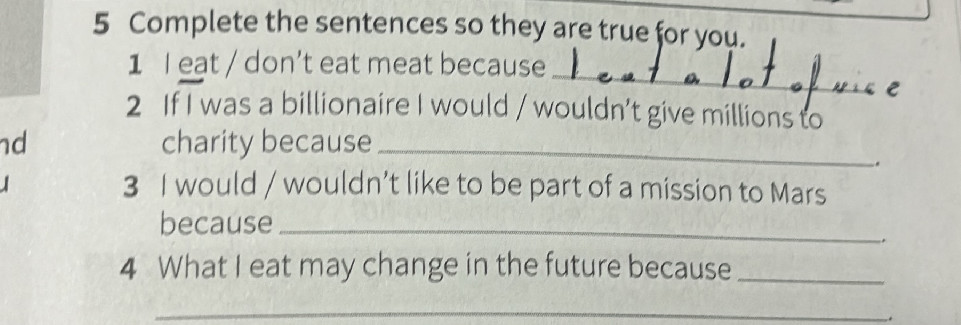 5 Complete the sentences so they are true for you.
1 I eat / don't eat meat because I eat a lot of rice
2 If I was a billionaire I would / wouldn't give millions to
nd charity because ____________.
3 I would / wouldn't like to be part of a mission to Mars
because ____________.
4 What I eat may change in the future because ____________
____________.